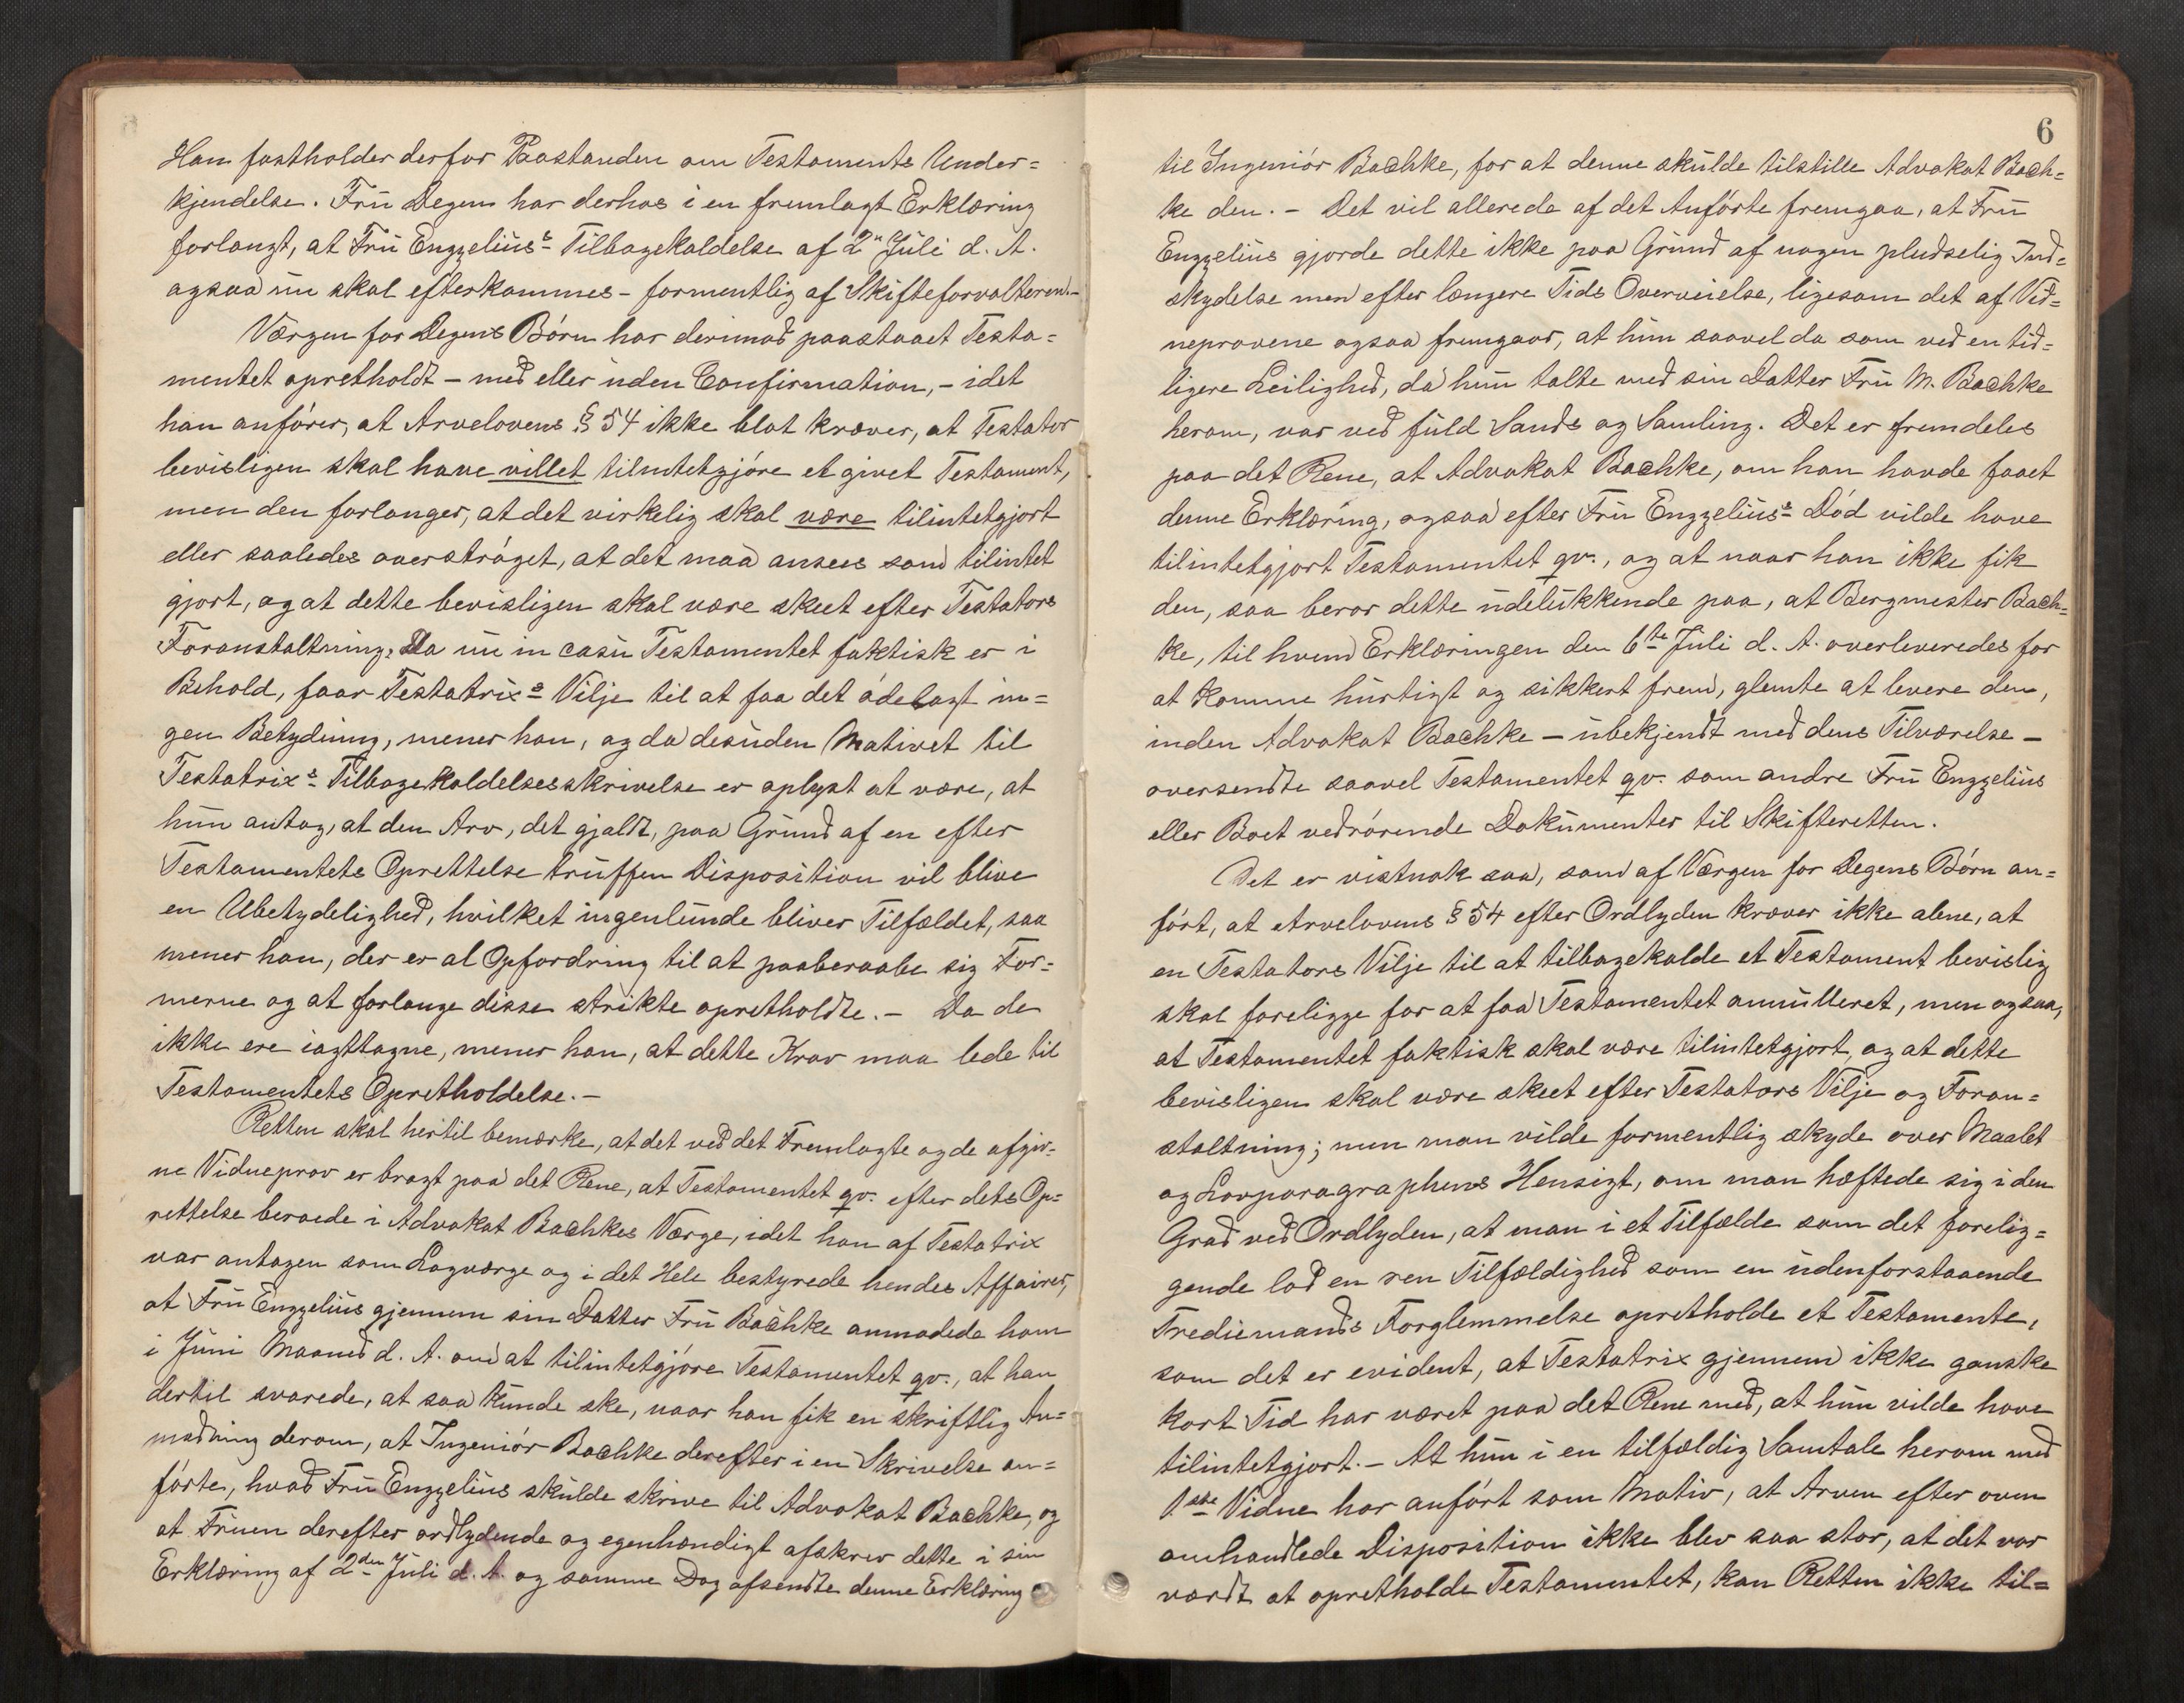 Han fastholder derfor Paastanden om Testaments Under=
kjendelse. Fru Degen har derhos i en fremlagt Erklæring
forlangt, at Fru Engzelius's Tilbagekaldelse af 2den Juli d. A.
ogsaa nu skal efterkommes – formentlig af Skifteforvalteren. –
Værgen for Degens Børn har derimod paastaaet Testa=
mentet opretholdt – med eller uden Confirmation, – idet
han anfører, at Arvelovens § 54 ikke blot kræver, at Testator
bevisligen skal have villet tilintetgjøre et givet Testament,
men den forlanger, at det virkelig skal være tilintetgjort
eller saaledes overstrøget, at det maa ansees som tilintet
gjort, og at dette bevisligen skal være skeet efter Testators
Foranstaltning. Da nu in casu Testamentet faktisk er i
Behold, faar Testatrix's Vilje til at faa det ødelagt in=
gen Betydning, mener han, og da desuden Motivet til
Testatrix's Tilbagekaldelsesskrivelse er oplyst at være, at
hun antog, at den Arv, det gjaldt, paa Grund af en efter
Testamentets Oprettelse truffen Disposition vil blive
en Ubetydelighed, hvilket ingenlunde bliver Tilfældet, saa
mener han, der er al Opfordring til at paaberaabe sig For=
merne og at forlange disse strikte opretholdte. – Da de
ikke ere iagttagne, mener han, at dette Krav maa lede til
Testamentets Opretholdelse. –
Retten skal hertil bemærke, at det ved det Fremlagte og de afgiv=
ne Vidneprov er bragt paa det Rene, at Testamentet qv. efter dets Op=
rettelse beroede i Advokat Bachkes Værge, idet han af Testatrix
var antagen som Lagværge og i det Hele bestyrede hendes Affairer,
at Fru Engzelius gjennem sin Datter Fru Bachke anmodede ham
i Juni Maaned d. A. om at tilintetgjøre Testamentet qv., at han
dertil svarede, at saa kunde ske, naar han fik en skriftlig An=
modning derom, at Ingeniør Bachke derefter i en Skrivelse an=
førte, hvad Fru Engzelius skulde skrive til Advokat Bachke, og
at Fruen derefter ordlydende og egenhændigt afskrev dette i sin
Erklæring af 2den Juli d. A. og samme Dag afsendte denne Erklæring
6
til Ingeniør Bachke, for at denne skulde tilstille Advokat Bach=
ke den. – Det vil allerede af det Anførte fremgaa, at Fru
Engzelius gjorde dette ikke paa Grund af nogen pludselig Ind=
skydelse men efter længere Tids Overveielse, ligesom det af Vid=
neprovene ogsaa fremgaar, at hun saavel da som ved en tid=
ligere Leilighed, da hun talte med sin Datter Fru M. Bachke
herom, var ved fuld Sands og Samling. Det er fremdeles
paa det Rene, at Advokat Bachke, om han havde faaet
denne Erklæring, ogsaa efter Fru Engzelius's Død vilde have
tilintetgjort Testamentet qv., og at naar han ikke fik
den, saa beror dette udelukkende paa, at Bergmester Bach=
ke, til hvem Erklæringen den 6te Juli d. A. overleveredes for
at komme hurtigt og sikkert frem, glemte at levere den,
inden Advokat Bachke – ubekjendt med dens Tilværelse –
oversendte saavel Testamentet qv. som andre Fru Engzelius
eller Boet vedrørende Dokumenter til Skifteretten.
Det er vistnok saa, som af Værgen for Degens Børn an=
ført, at Arvelovens § 54 efter Ordlyden kræver ikke alene, at
en Testators Vilje til at tilbagekalde et Testament bevislig
skal foreligge for at faa Testamentet annulleret, men ogsaa,
at Testamentet faktisk skal være tilintetgjort, og at dette
bevisligen skal være skeet efter Testators Vilje og Foran=
staltning; men man vilde formentlig skyde over Maalet
og Lovparagraphens Hensigt, om man hæftede sig i den
Grad ved Ordlyden, at man i et Tilfælde som det forelig=
gende lod en ren Tilfældighed som en udenforstaaende
Trediemands Forglemmelse opretholde et Testamente,
som det er evident, at Testatrix gjennem ikke ganske
kort Tid har været paa det Rene med, at hun vilde have
tilintetgjort. – At hun i en tilfældig Samtale herom med
1ste Vidne har anført som Motiv, at Arven efter oven
omhandlede Disposition ikke blev saa stor, at det var
værdt at opretholde Testamentet, kan Retten ikke til=